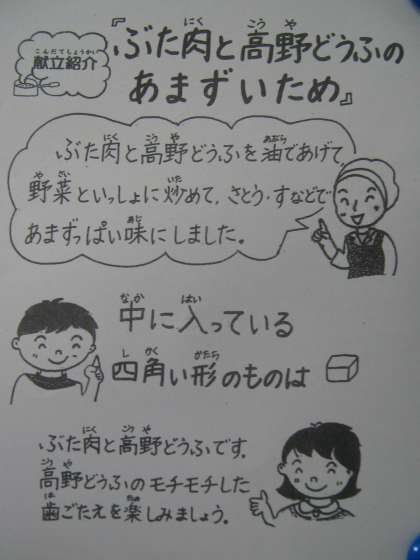 こんだてしょうかい
献立紹介
『ぶた肉と高野どうふの
あまずいため』
ぶた肉と高野どうふを油であげて、
野菜といっしょに炒めて、さとう・すなどで
あまずっぱい味にしました。
中に入っている
四角い形のものは
ぶた肉と高野どうふです。
高野どうふのモチモチした
歯ごたえを楽しみましょう。